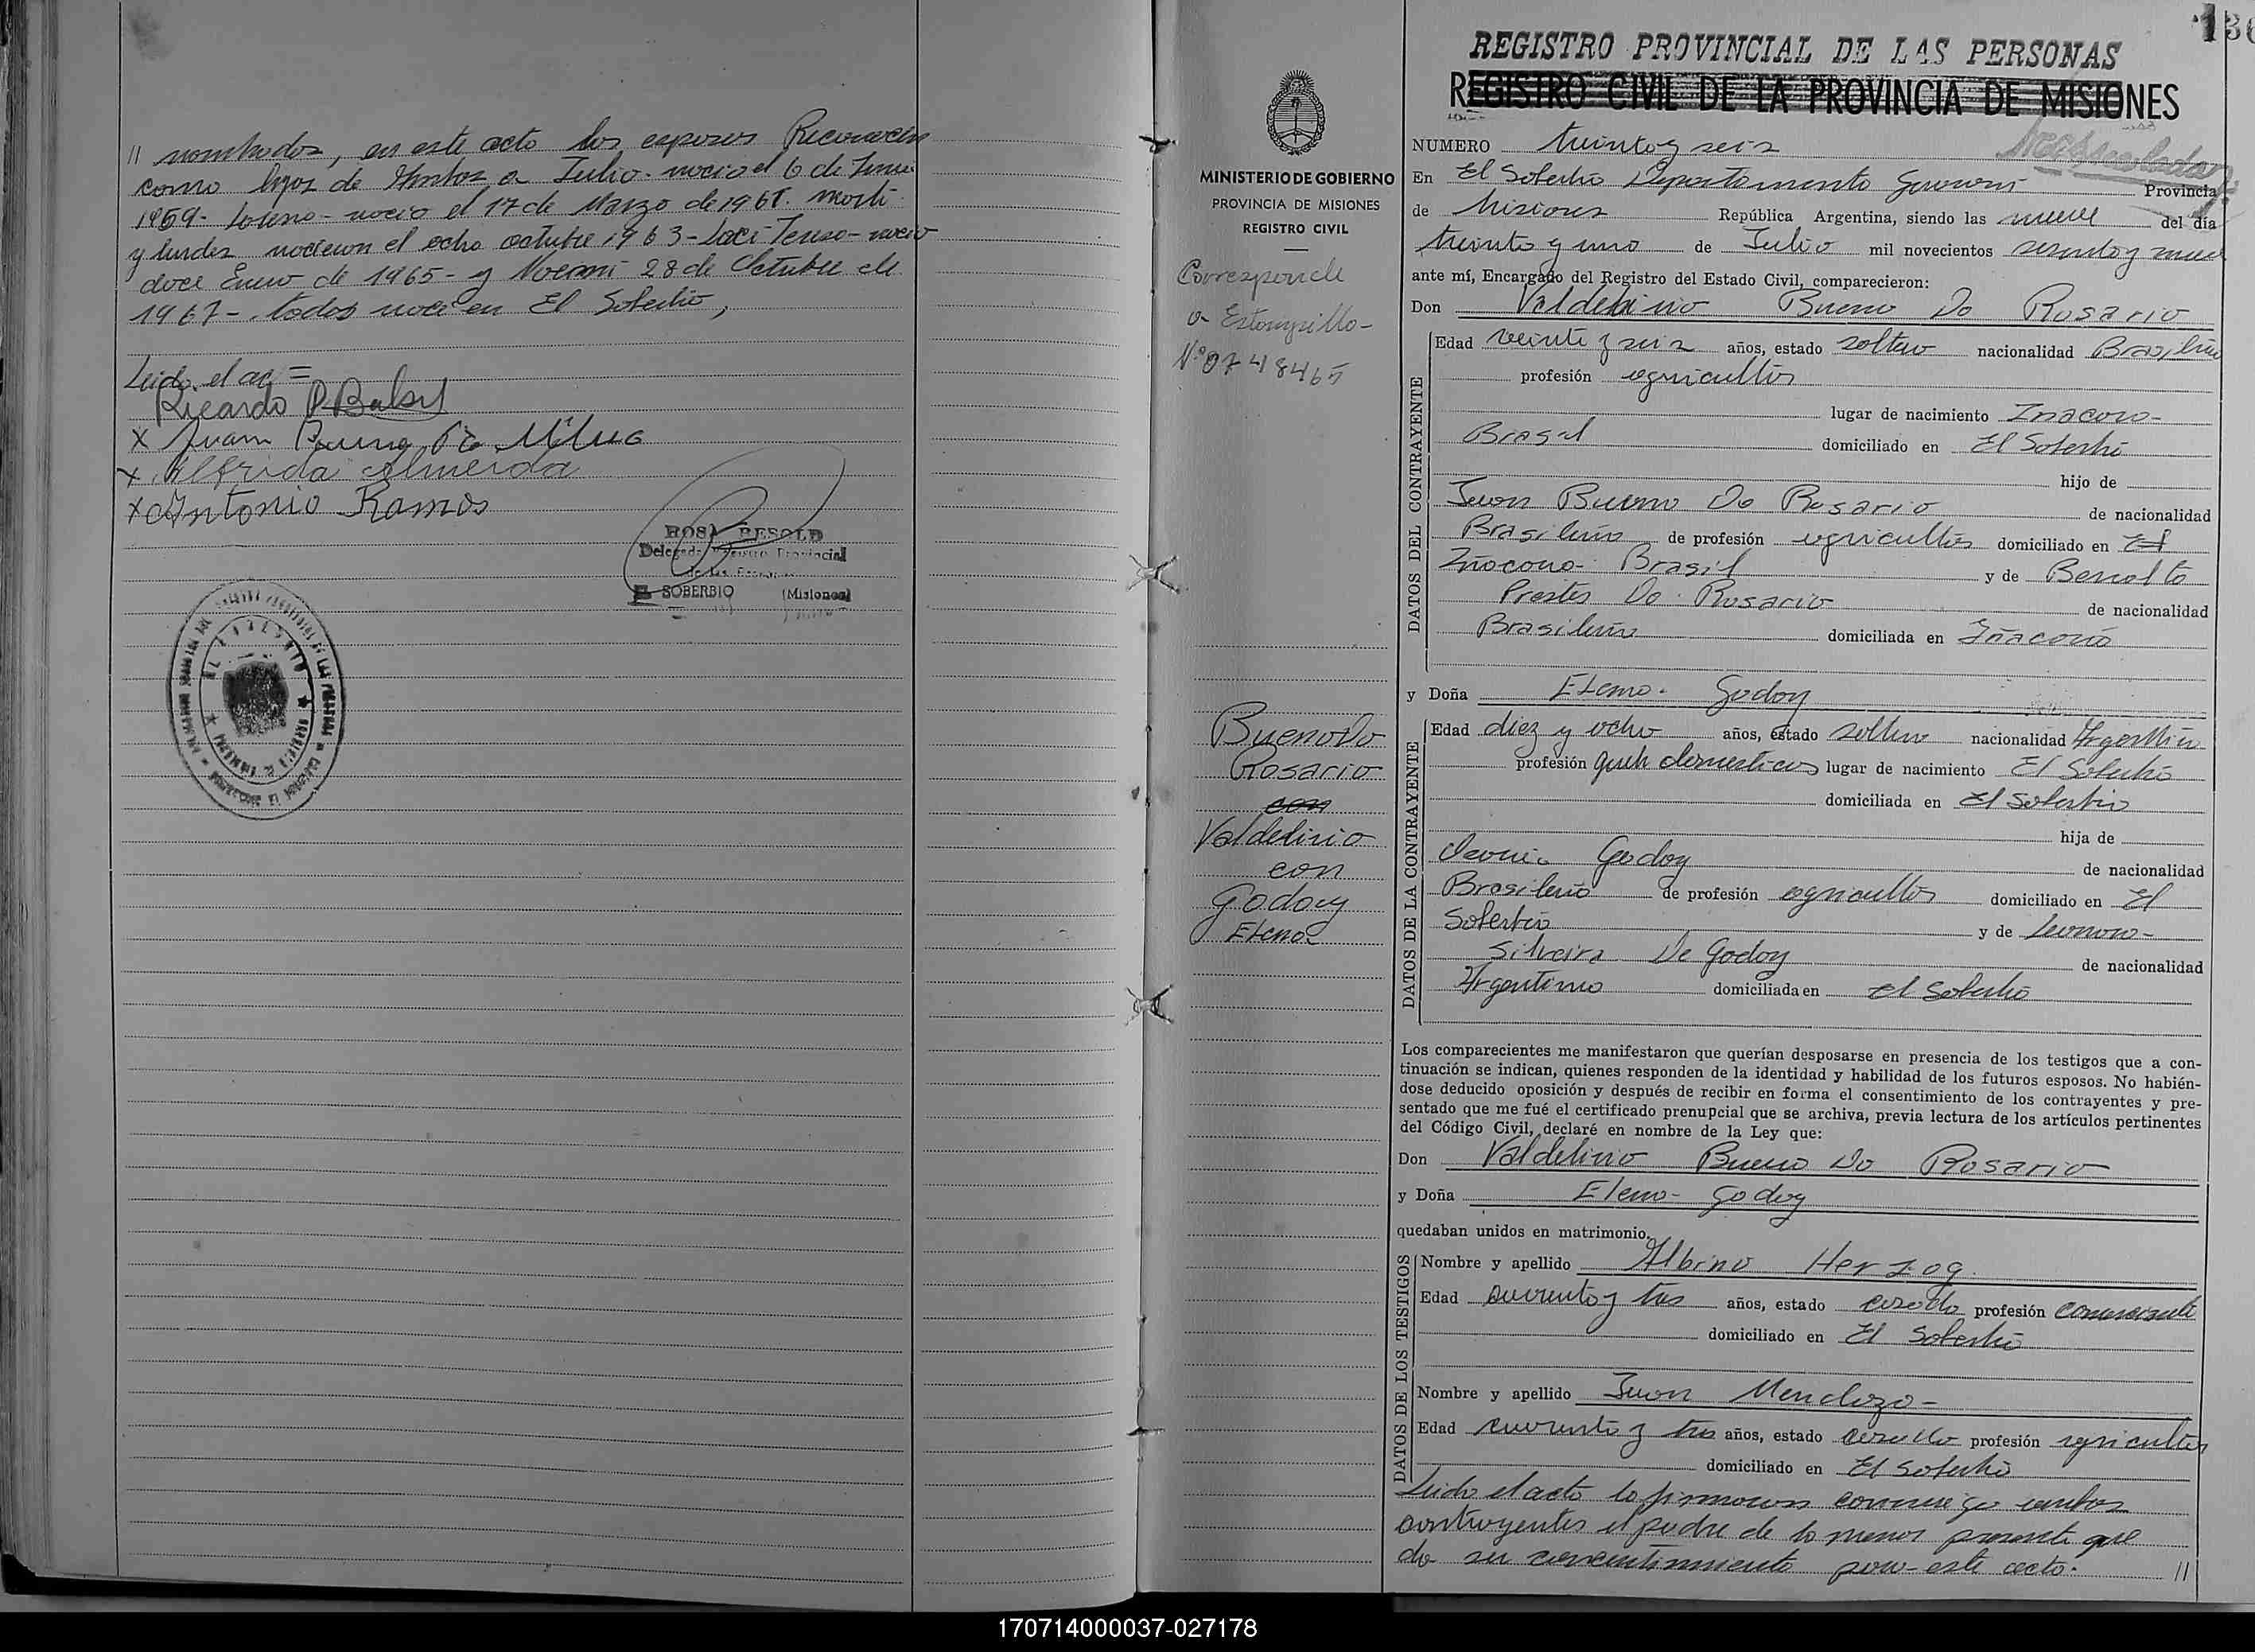 // nombrados, en este acto los esposos Reconocen
como hijos de Ambos a Julio. nacio el 6 de
1959- nacio el 17 de Marzo de 1961.
y nacieron el ocho octubre 1963- nacio
doce Enero de 1965- y Noemi 28 de Octubre de
1967- todos naci en El Soberbio,
Leido el ac =
Ricardo P
X Juan
X Alfrida Almeida
X Antonio Ramos
ROSA RESOLD
Delegada Registro Provincial
de las Personas
EL SOBERBIO (Misiones)
136
REGISTRO PROVINCIAL DE LAS PERSONAS
REGISTRO CIVIL DE LA PROVINCIA DE MISIONES
MINISTERIO DE GOBIERNO
PROVINCIA DE MISIONES
REGISTRO CIVIL
Corresponde
a Estampillo-
Nº 0748465
Bueno Do
Rosario
con
Valdelirio
con
Godoy
Elena
NUMERO treinta y seis
En El Soberbio Departamento Guarani Provincia
de Misiones República Argentina, siendo las nueve del día
treinta y uno de Julio mil novecientos sesenta y nueve
ante mí, Encargado del Registro del Estado Civil, comparecieron:
Don Valdelirio Bueno Do Rosario
DATOS DEL CONTRAYENTE
Edad veinte y seis años, estado soltero nacionalidad Brasileño
profesión agricultor
lugar de nacimiento
Brasil domiciliado en El Soberbio
hijo de
Juan Bueno Do Rosario de nacionalidad
Brasileño de profesión agricultor domiciliado en El
Brasil y de
Prestes Do Rosario de nacionalidad
Brasileña domiciliada en
y Doña Elena Godoy
DATOS DE LA CONTRAYENTE
Edad diez y ocho años, estado soltera nacionalidad Argentina
profesión queh domesticos lugar de nacimiento El Soberbio
domiciliada en El Soberbio
hija de
Godoy de nacionalidad
Brasileño de profesión agricultor domiciliado en El
Soberbio y de Leonora-
Silveira De Godoy de nacionalidad
Argentina domiciliada en El Soberbio
Los comparecientes me manifestaron que querían desposarse en presencia de los testigos que a con-
tinuación se indican, quienes responden de la identidad y habilidad de los futuros esposos. No habién-
dose deducido oposición y después de recibir en forma el consentimiento de los contrayentes y pre-
sentado que me fué el certificado prenupcial que se archiva, previa lectura de los artículos pertinentes
del Código Civil, declaré en nombre de la Ley que:
Don Valdelirio Bueno Do Rosario
y Doña Elena Godoy
quedaban unidos en matrimonio.
DATOS DE LOS TESTIGOS
Nombre y apellido Albino Herzog
Edad cuarenta y tres años, estado casado profesión comerciante
domiciliado en El Soberbio
Nombre y apellido Juan Mendozo-
Edad cuarenta y tres años, estado casado profesión agricultor
domiciliado en El Soberbio
Leido el acto lo firmaron conmigo ambos
contrayentes el padre de la menor presente que
da su consentimiento para este acto. //
170714000037-027178